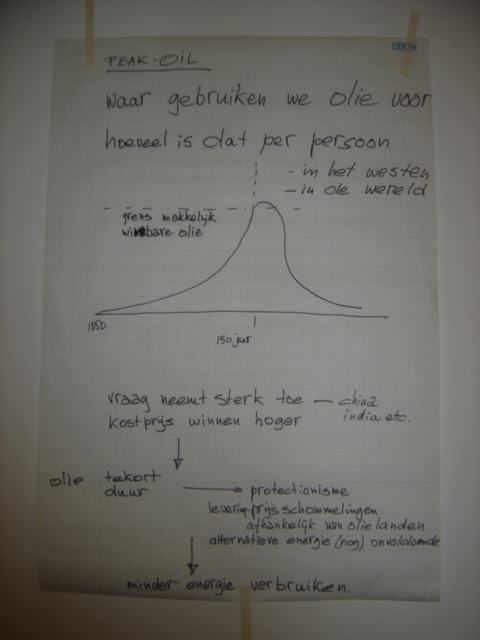 PEAK-OIL
waar gebruiken we olie voor
hoeveel is dat per persoon
- in het westen
- in de wereld
grens makkelijk
winbare olie
1850
150 jaar
vraag neemt sterk toe — china
india etc.
kostprijs winnen hoger
olie tekort
duur
protectionisme
levering-prijs schommelingen
afhankelijk van olielanden
alternatieve energie (nog) onvoldoende
minder energie verbruiken.